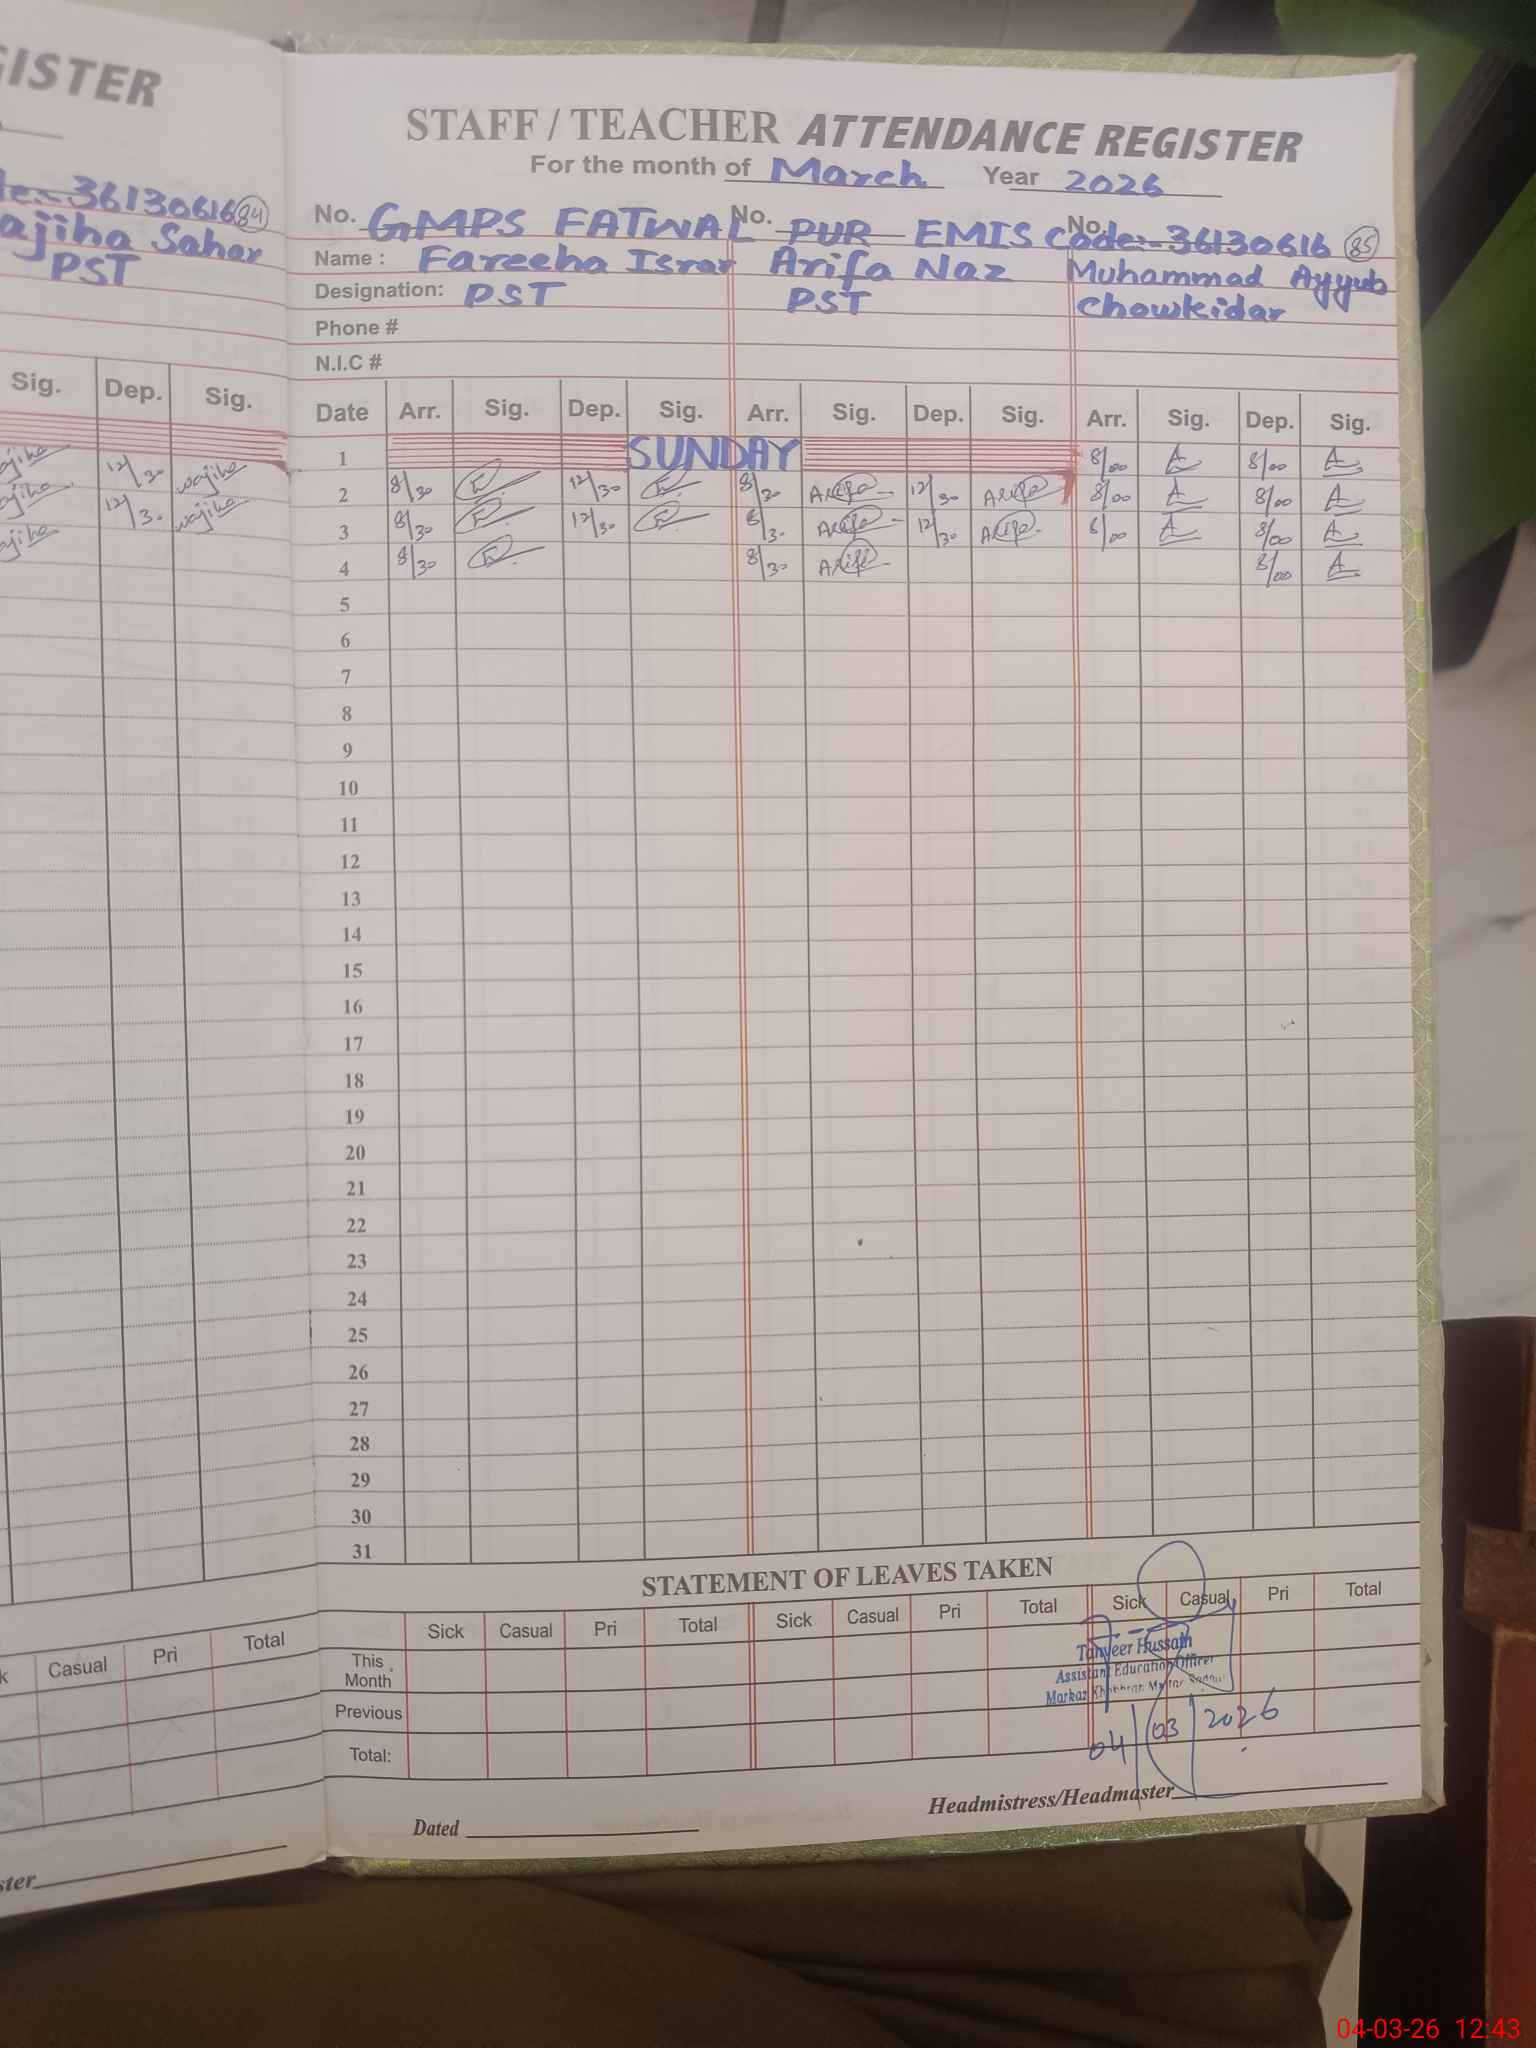 GISTER
de:- 36130616 84
ajiha Sahar
PST
Sig. Dep. Sig.
12/30 wajiha
12/30 wajiha
Casual Pri Total
ster
STAFF / TEACHER ATTENDANCE REGISTER
For the month of March Year 2026
No. GMPS FATWAL No. PUR EMIS No. Code:- 36130616 85
Name : Fareeha Israr Arifa Naz Muhammad Ayyub
Designation: PST PST Chowkidar
Phone #
N.I.C #
Date Arr. Sig. Dep. Sig. Arr. Sig. Dep. Sig. Arr. Sig. Dep. Sig.
1 SUNDAY 8/00 A 8/00 A
2 8/30 12/30 8/30 Arifa 12/30 Arifa 8/00 A 8/00 A
3 8/30 12/30 8/30 Arifa 12/30 Arifa 8/00 A 8/00 A
4 8/30 8/30 Arifa 8/00 A
5
6
7
8
9
10
11
12
13
14
15
16
17
18
19
20
21
22
23
24
25
26
27
28
29
30
31
STATEMENT OF LEAVES TAKEN
Sick Casual Pri Total Sick Casual Pri Total Sick Casual Pri Total
This Month
Previous
Total:
Tanveer Hussain
Assistant Education Officer
Markaz
04/03/2026
Headmistress/Headmaster
Dated
04-03-26 12:43